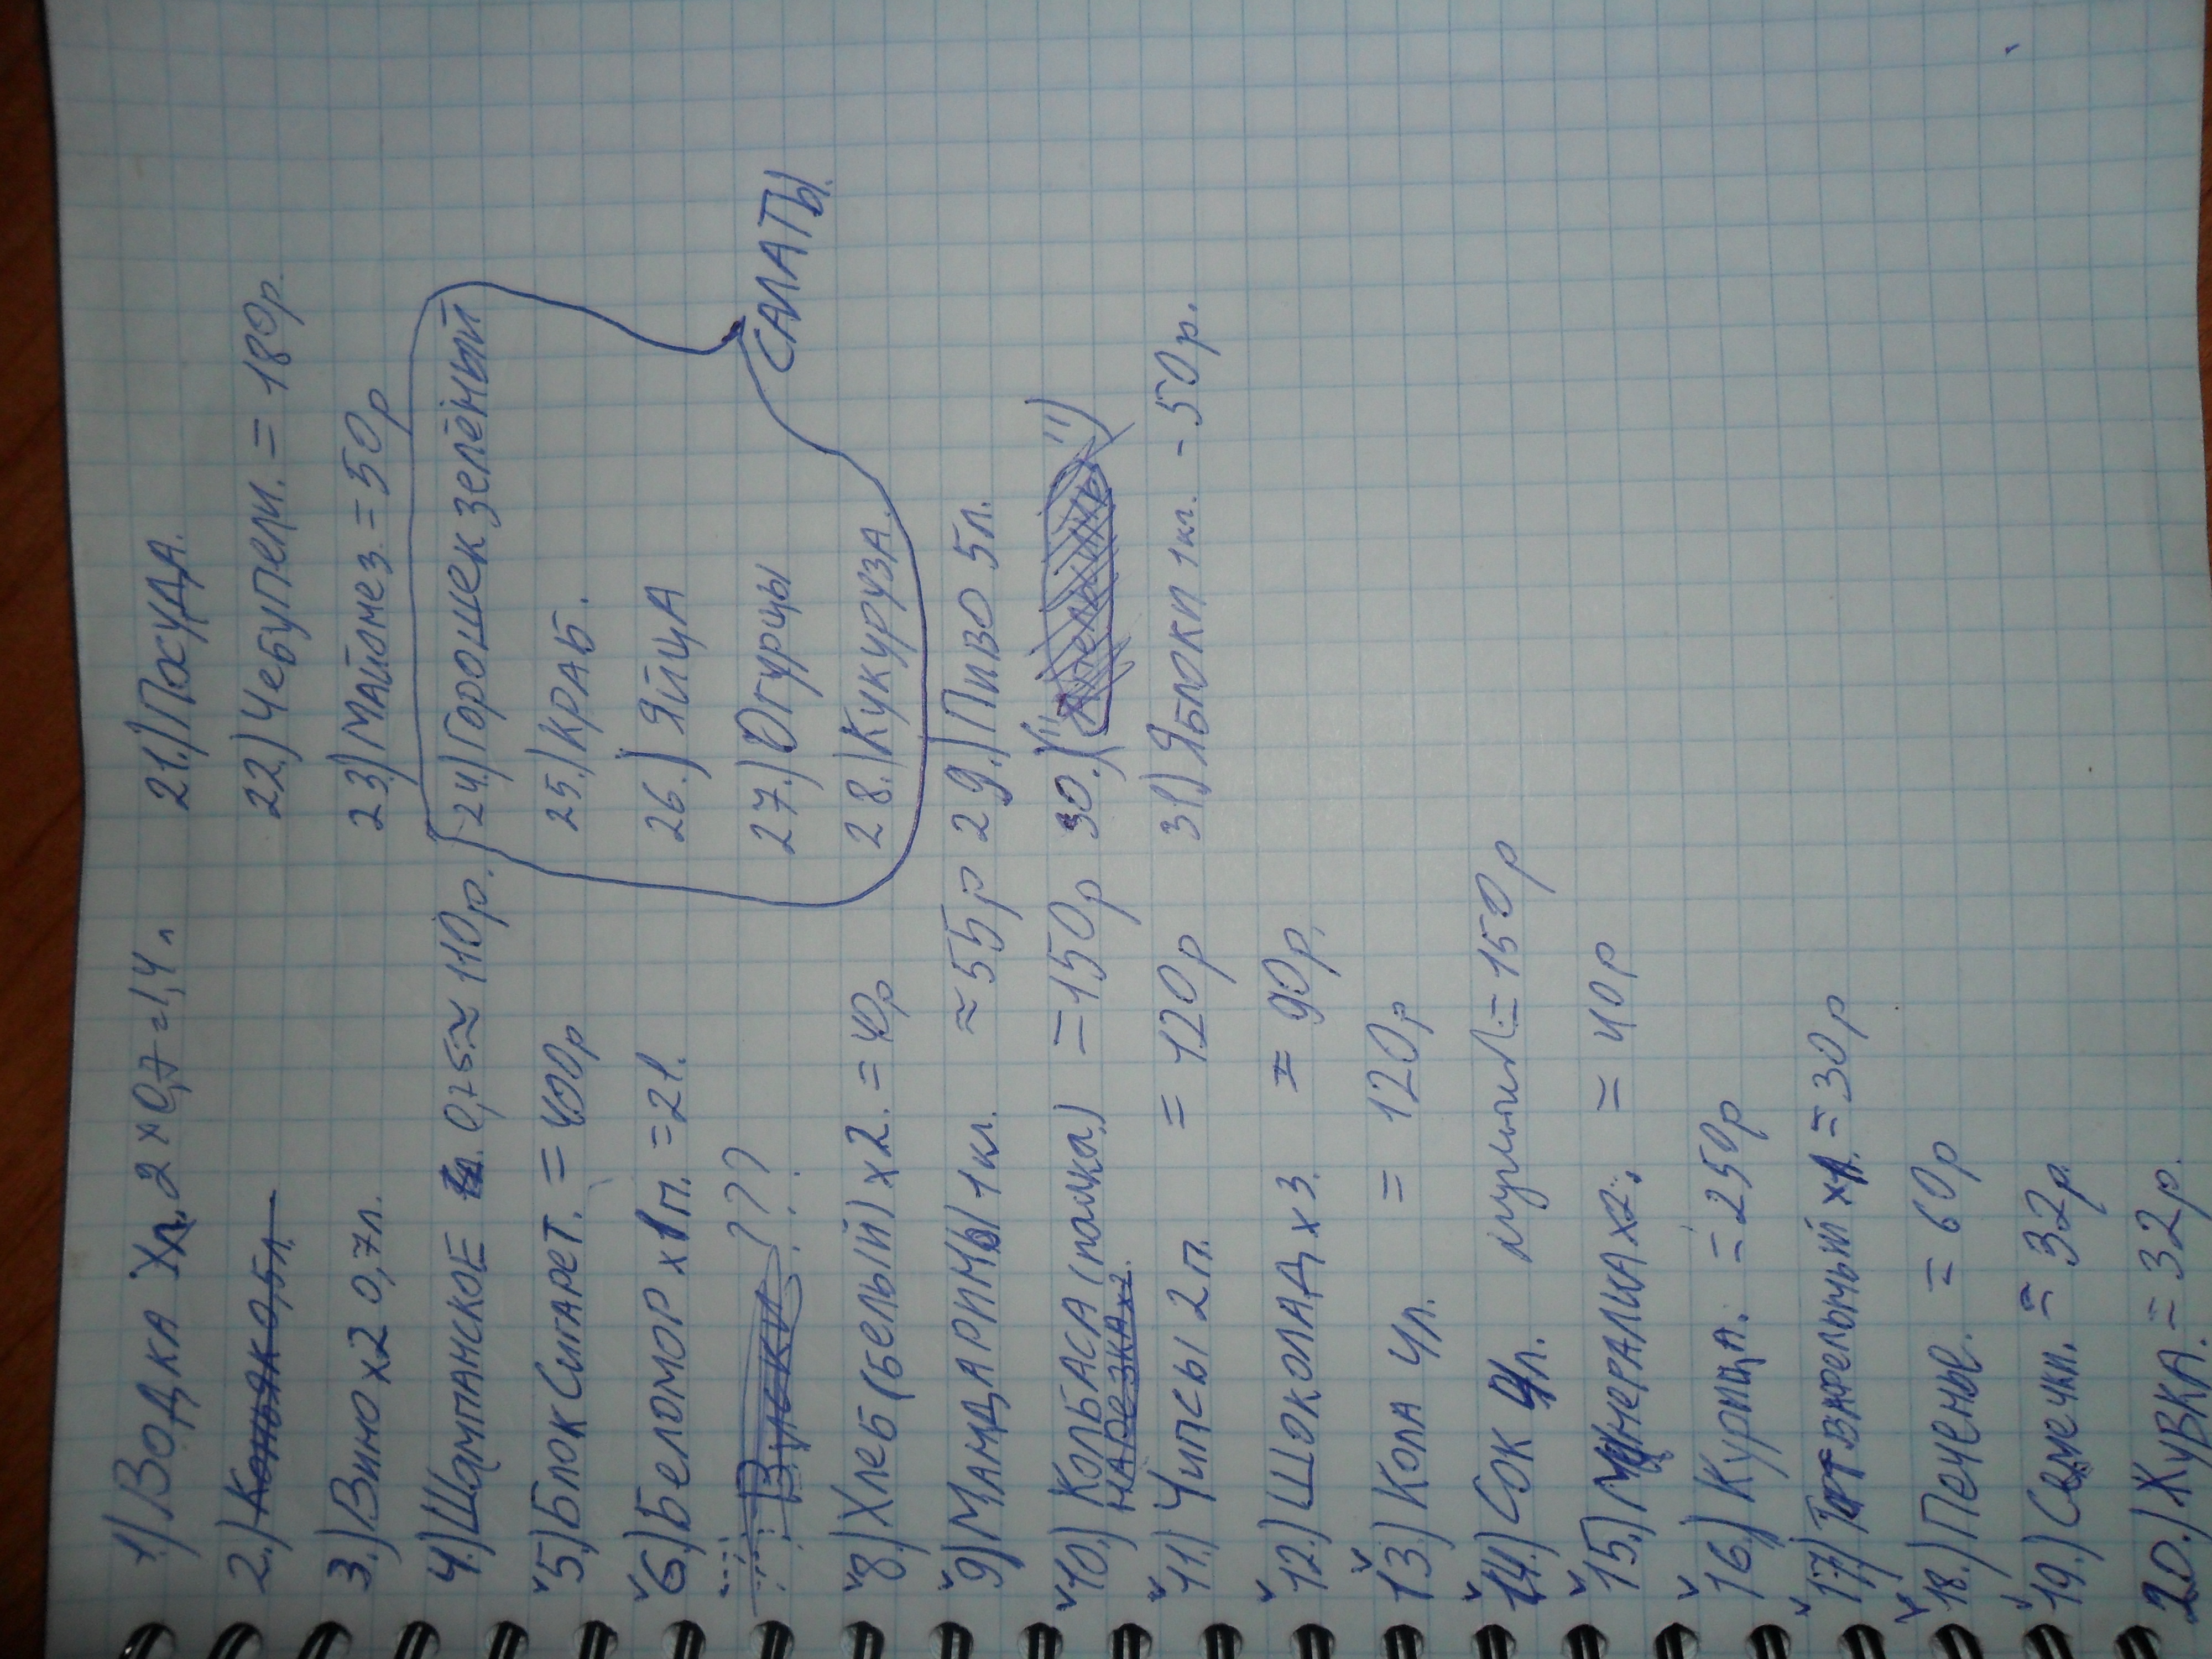 1.) Водка 2 x 0,7 = 1,4 л
2.) Коньяк 0,5 л.
3.) Вино x2 0,7л.
4.) Шампанское 0,75 ≈ 110р.
5.) Блок Сигарет. = 400р
6.) Беломор x1п. = 21.
Виски ???
8.) Хлеб (белый) x2. = 40р
9) Мандарины 1кл. ≈ 55р
10.) Колбаса (палка) = 150р
нарезка x2.
11.) Чипсы 2п. = 120р
12.) Шоколад x3. = 90р.
13.) Кола 4л. = 120р
14.) Сок 4л. = 150р
15.) Минералка x2. = 40р
16.) Курица. = 250р
17.) Торт вафельный x1. = 30р
18.) Печенье. = 60р
19.) Семечки. = 32р.
20.) Жувка. = 32р.
21.) Посуда.
22.) Чебупели. = 180р.
23.) Майонез. = 50р
24.) Горошек зелёный
25.) Краб.
26.) Яйца
27.) Огурцы
28.) Кукуруза.
Салаты.
29.) Пиво 5л.
30.)
31.) Яблоки 1кг. - 50р.